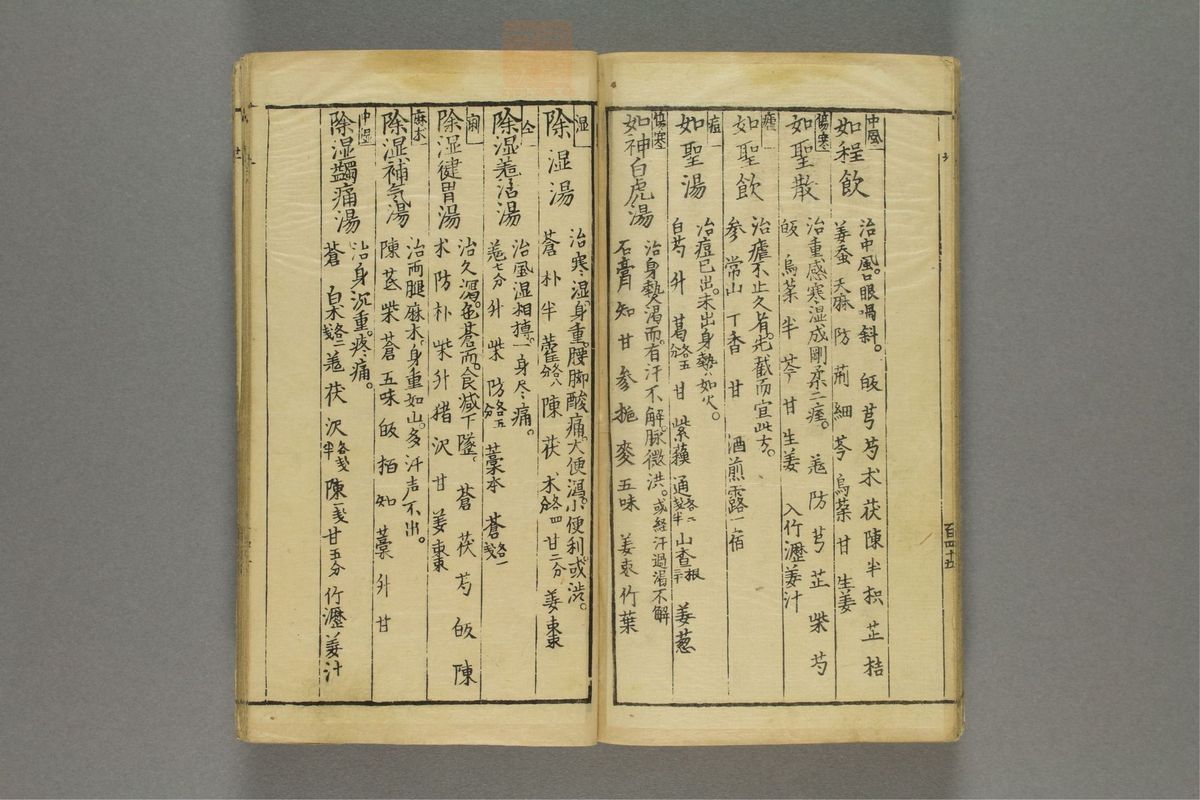 中風
如程飲
治中風。口眼喎斜。 皈 芎 芍 朮 茯 陳 半 枳 芷 桔
姜蚕 天麻 防 荊 細 芩 烏薬 甘 生姜
傷寒
如聖散
治重感寒湿成剛柔二痓。 羌 防 芎 芷 柴 芍
皈 烏薬 半 芩 甘 生姜 入竹瀝姜汁
瘧
如聖飲
治瘧不止久者。先截而宜此方。
参 常山 丁香 甘 酒煎露一宿
痘
如聖湯
治痘已出。未出身熱如火。
白芍 升 葛各五分 甘 紫蘓 通各二戔半 山査根三 姜葱
傷寒
如神白虎湯
治身熱渇而。有汗不解。脉微洪。或経汗過渇不解
石膏 知 甘 参 梔 麦 五味 姜枣竹葉
湿
除湿湯
治寒湿。身重。腰脚酸痛。大便瀉。小便利。或渋。
蒼 朴 半 藿各八分 陳 茯 朮各四分 甘二分 姜棗
仝
除湿羗活湯
治風湿相搏。一身尽痛。
羗七分 升 柴 防各五分 藁本 蒼各一戔
除湿健胃湯
治久瀉。色蒼而。食减下墜。 蒼 茯 芍 皈 陳
朮 防 朴 柴 升 猪 沢 甘 姜棗
麻木
除湿補気湯
治両腿麻木。身重如山。多汗声不出。
陳 芪 柴 蒼 五味 皈 栢 知 藁 升 甘
中湿
除湿蠲痛湯
治身沉重。疼痛。
蒼 白朮各二戔 羗 茯 沢各戔半 陳一戔 甘五分 竹瀝姜汁
百四十五